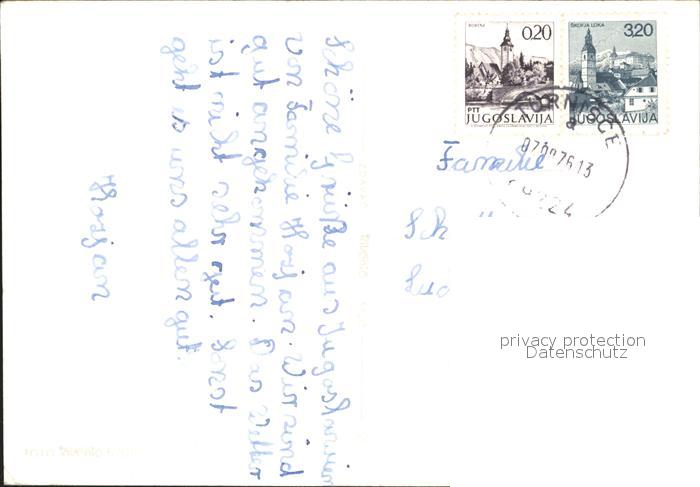 Schöne Grüße aus Jugoslawien
von Familie Horjan. Wir sind
gut angekommen. Das Wetter
ist nicht sehr gut. Sonst
geht es uns allen gut.
Horjan
BOHINJ
0.20
PTT
JUGOSLAVIJA
ŠKOFJA LOKA
3,20
JUGOSLAVIJA
TURNIŠČE
Familie
Sch
Lud
privacy protection
Datenschutz